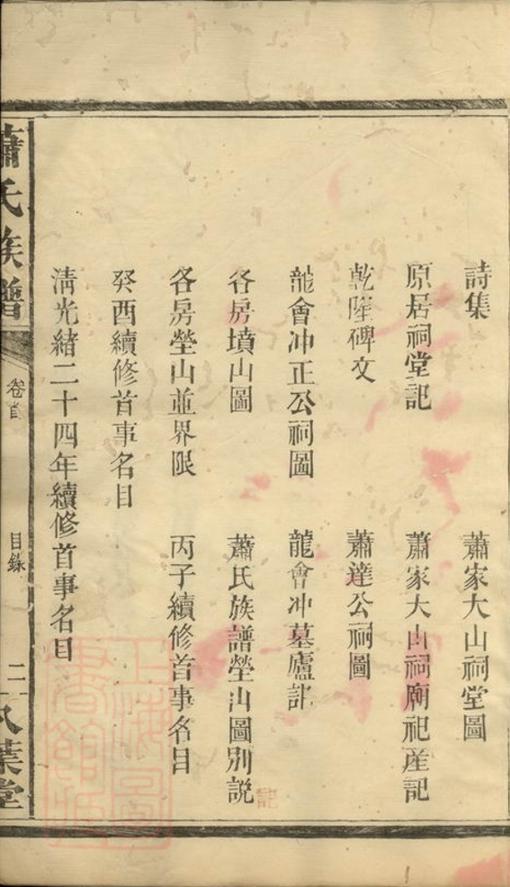 詩集
蕭家大山祠堂圖
原居祠堂記
蕭家大山祠廟祀産記
乾隆碑文
蕭達公祠圖
龍會冲正公祠圖
龍會冲墓廬記
各房墳山圖
蕭氏族譜塋山圖別説
記
各房塋山並界限
丙子續修首事名目
癸酉續修首事名目
淸光緒二十四年續修首事名目
蕭氏族譜
卷首
目錄
二
八葉堂
上海圖書館藏